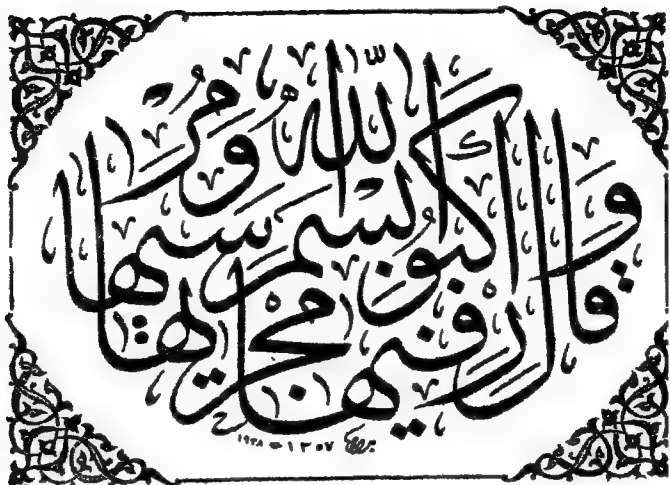 وَقَالَ ارْكَبُوا فِيهَا بِسْمِ اللّٰهِ مَجْرٰيهَا وَمُرْسٰيهَا
١٣٥٧ - ١٩٣٨